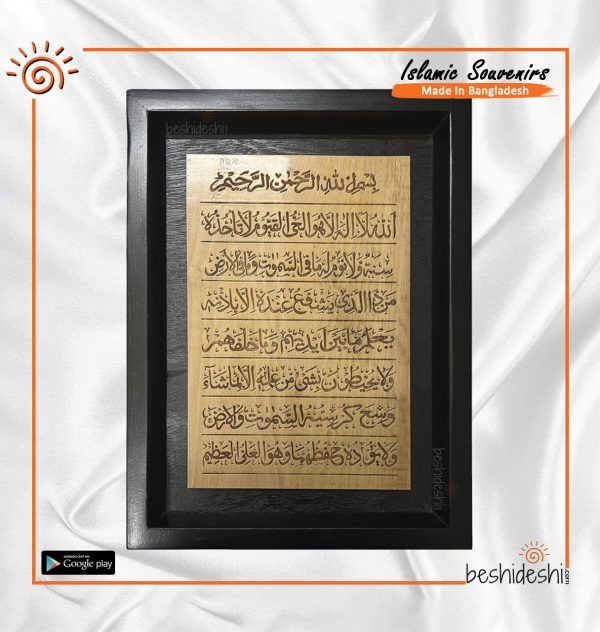 Islamic Souvenirs
Made In Bangladesh
beshideshi
بِسْمِ اللهِ الرَّحْمٰنِ الرَّحِيْمِ
اَللهُ لَا اِلٰهَ اِلَّا هُوَ الْحَيُّ الْقَيُّوْمُ لَا تَأْخُذُهُ
سِنَةٌ وَّلَا نَوْمٌ لَهُ مَا فِي السَّمٰوٰتِ وَمَا فِي الْاَرْضِ
مَنْ ذَا الَّذِيْ يَشْفَعُ عِنْدَهُ اِلَّا بِاِذْنِهِ
يَعْلَمُ مَا بَيْنَ اَيْدِيْهِمْ وَمَا خَلْفَهُمْ
وَلَا يُحِيْطُوْنَ بِشَيْءٍ مِّنْ عِلْمِهِ اِلَّا بِمَا شَآءَ
وَسِعَ كُرْسِيُّهُ السَّمٰوٰتِ وَالْاَرْضَ
وَلَا يَئُوْدُهُ حِفْظُهُمَا وَهُوَ الْعَلِيُّ الْعَظِيْمُ
beshideshi
ANDROID APP ON
Google play
beshideshi.com